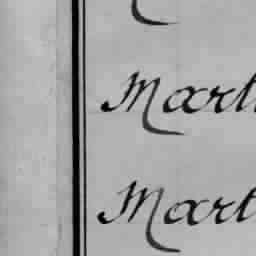 Mart
Mart